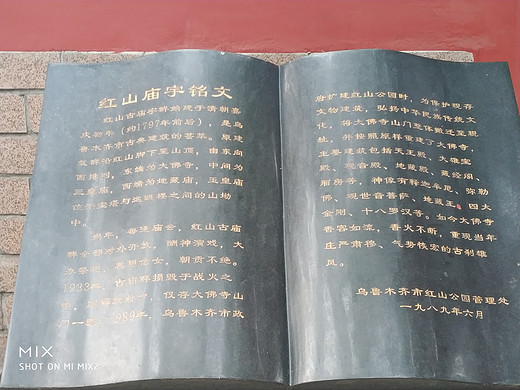 红山庙宇铭文
红山古庙宇群始建于清朝嘉
庆初年（约1797年前后），是乌
鲁木齐市古典建筑的荟萃。原建
筑群沿红山脚下至山顶，由东向
西排列，东端为大佛寺，中间为
玉皇庙，西端为地藏庙，玉皇庙
位于宝塔与远眺楼之间的山坳
中。
当年，每逢庙会，红山古庙
群会场分外热，酬神演戏，大
众祭祀，善男信女，朝贡不绝。
1933年，古庙群损毁于战火之
中，
仅存大佛寺山
门一1989年，乌鲁木齐市政
府扩建红山公园时，为保护现存
文物建筑，弘扬中华民族传统文
化，将大佛寺山门整体搬迁至现
址，并按照原样重建了大佛寺，
主要建筑包括天王殿、大雄宝
殿、观音殿、地藏殿、藏经阁、
厢房等，神像有释迦牟尼、弥勒
佛、观世音菩萨、地藏王、四大
金刚、十八罗汉等。如今大佛寺
香客如流，香火不断，重现当年
庄严肃穆、气势恢宏的古刹雄
风。
乌鲁木齐市红山公园管理处
一九八九年六月
MIX
SHOT ON MI MIX2